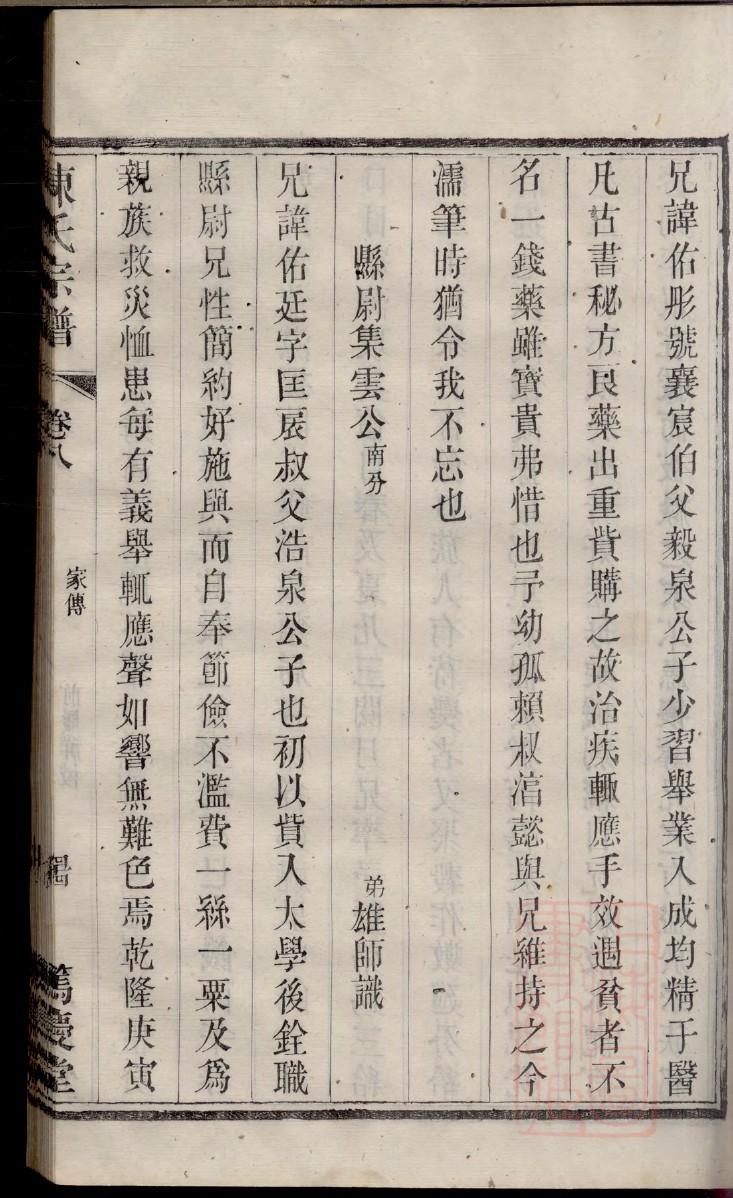 兄諱佑彤號襄宸伯父毅泉公子少習舉業入成均精于醫
凡古書秘方良藥出重貲購之故治疾輒應手效遇貧者不
名一錢藥雖寶貴弗惜也予幼孤賴叔涫懿與兄維持之今
濡筆時猶令我不忘也
縣尉集雲公南分
弟雄師識
兄諱佑廷字匡扆叔父浩泉公子也初以貲入太學後銓職
縣尉兄性簡約好施與而自奉節儉不濫費一絲一粟及為
親族救災恤患每有義舉輒應聲如響無難色焉乾隆庚寅
陳氏宗譜
卷八
家傳
篤慶堂